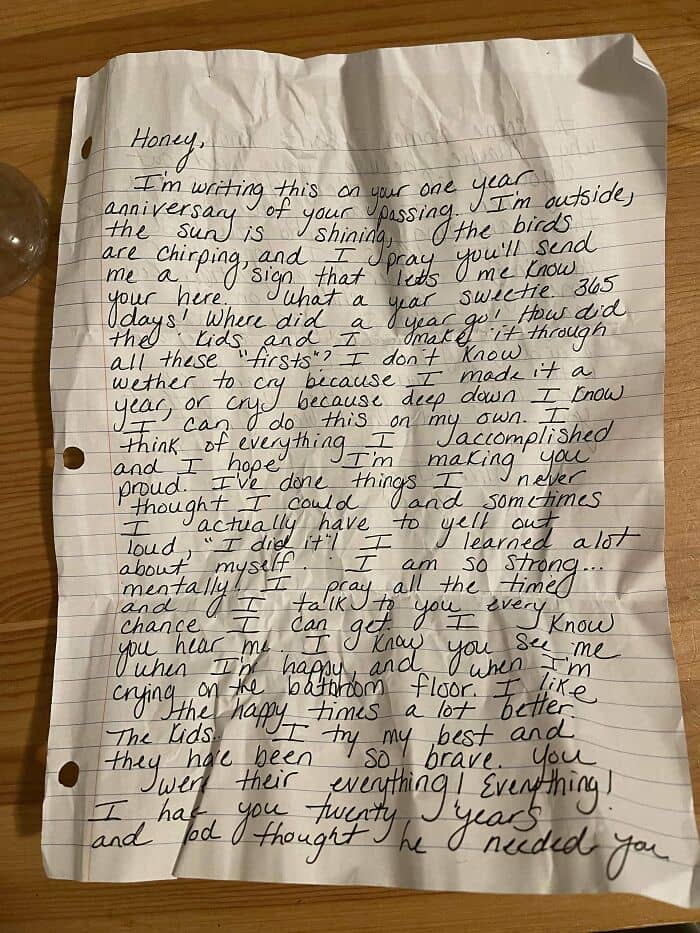 Honey,
I'm writing this on your one year
anniversary of your passing. I'm outside,
the sun is shining, the birds
are chirping, and I pray you'll send
me a sign that lets me know
your here. What a year sweetie. 365
days! Where did a year go! How did
the kids and I make it through
all these "firsts"? I don't know
wether to cry because I made it a
year, or cry because deep down I know
I can do this on my own. I
think of everything I accomplished
and I hope I'm making you
proud. I've done things I never
thought I could and sometimes
I actually have to yell out
loud, "I did it"! I learned a lot
about myself. I am so strong...
mentally! I pray all the time
and I talk to you every
chance I can get. I know
you hear me. I know you see me
when I'm happy, and when I'm
crying on the bathroom floor. I like
the happy times a lot better.
The kids. I try my best and
they have been so brave. You
were their everything! Everything!
I had you twenty years
and God thought he needed you